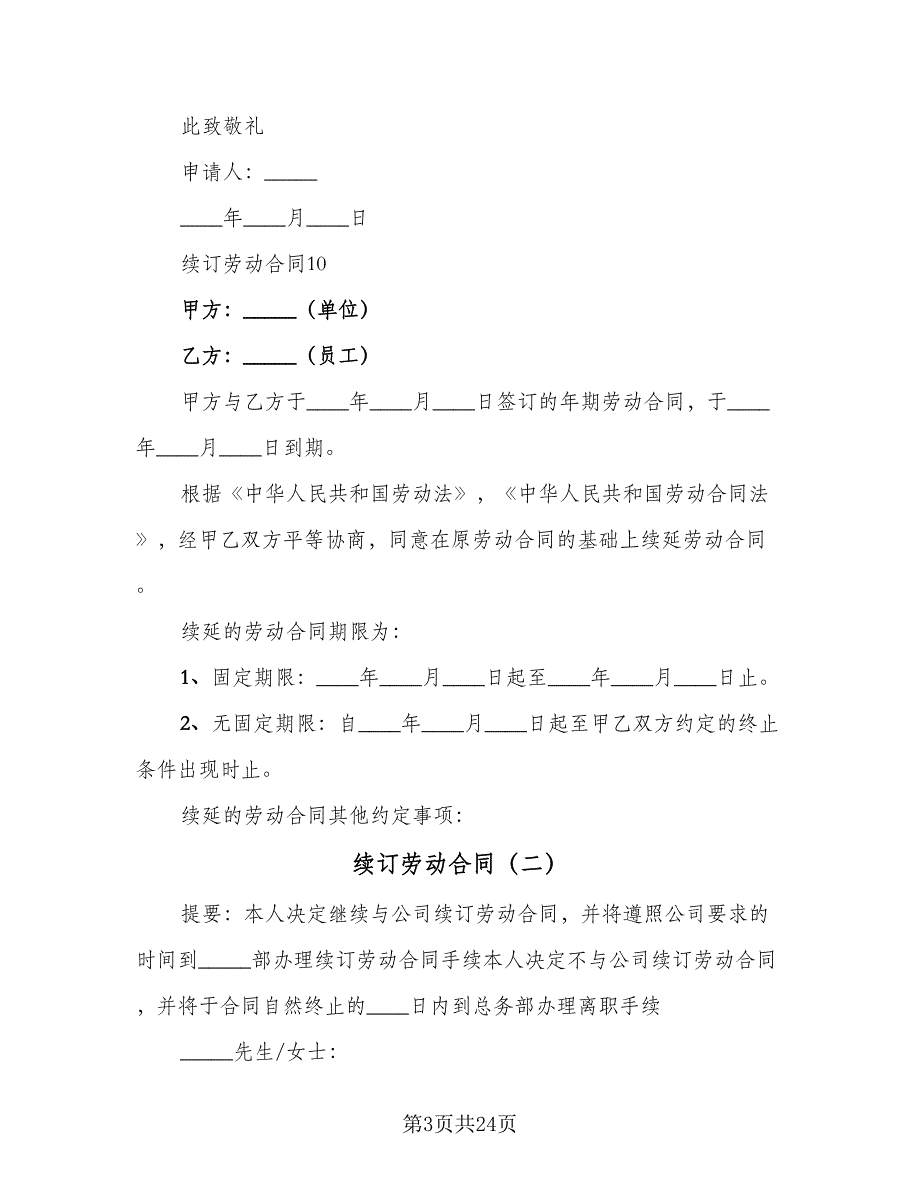 此致敬礼
申请人：_____
____年____月____日
续订劳动合同10
甲方：_____（单位）
乙方：_____（员工）
甲方与乙方于____年____月____日签订的年期劳动合同，于____
年____月____日到期。
根据《中华人民共和国劳动法》，《中华人民共和国劳动合同法
》，经甲乙双方平等协商，同意在原劳动合同的基础上续延劳动合同
。
续延的劳动合同期限为：
1、固定期限：____年____月____日起至____年____月____日止。
2、无固定期限：自____年____月____日起至甲乙双方约定的终止
条件出现时止。
续延的劳动合同其他约定事项：
续订劳动合同（二）
提要：本人决定继续与公司续订劳动合同，并将遵照公司要求的
时间到_____部办理续订劳动合同手续本人决定不与公司续订劳动合同
，并将于合同自然终止的____日内到总务部办理离职手续
_____先生/女士：
第3页共24页